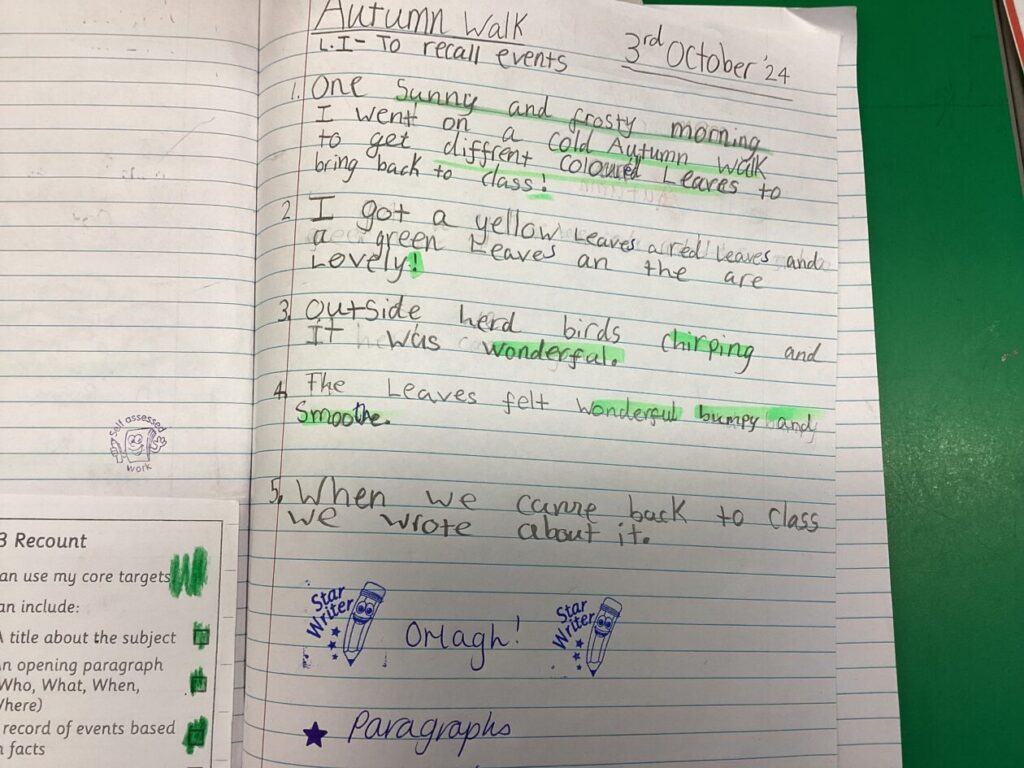 Autumn Walk
3rd October '24
L.I - To recall events
1. One sunny and frosty morning
I went on a cold Autumn walk
to get diffrent coloured Leaves to
bring back to class!
2 I got a yellow Leaves a red leaves and
a green Leaves an the are
Lovely!
3. outside herd birds chirping and
It was wonderful.
4. The Leaves felt wonderful bumpy and
Smoothe.
5. When we came back to class
we wrote about it.
Star Writer
Orlagh!
Star Writer
★ Paragraphs
Self assessed
work
3 Recount
an use my core targets
an include:
A title about the subject
An opening paragraph
(Who, What, When,
Where)
record of events based
n facts